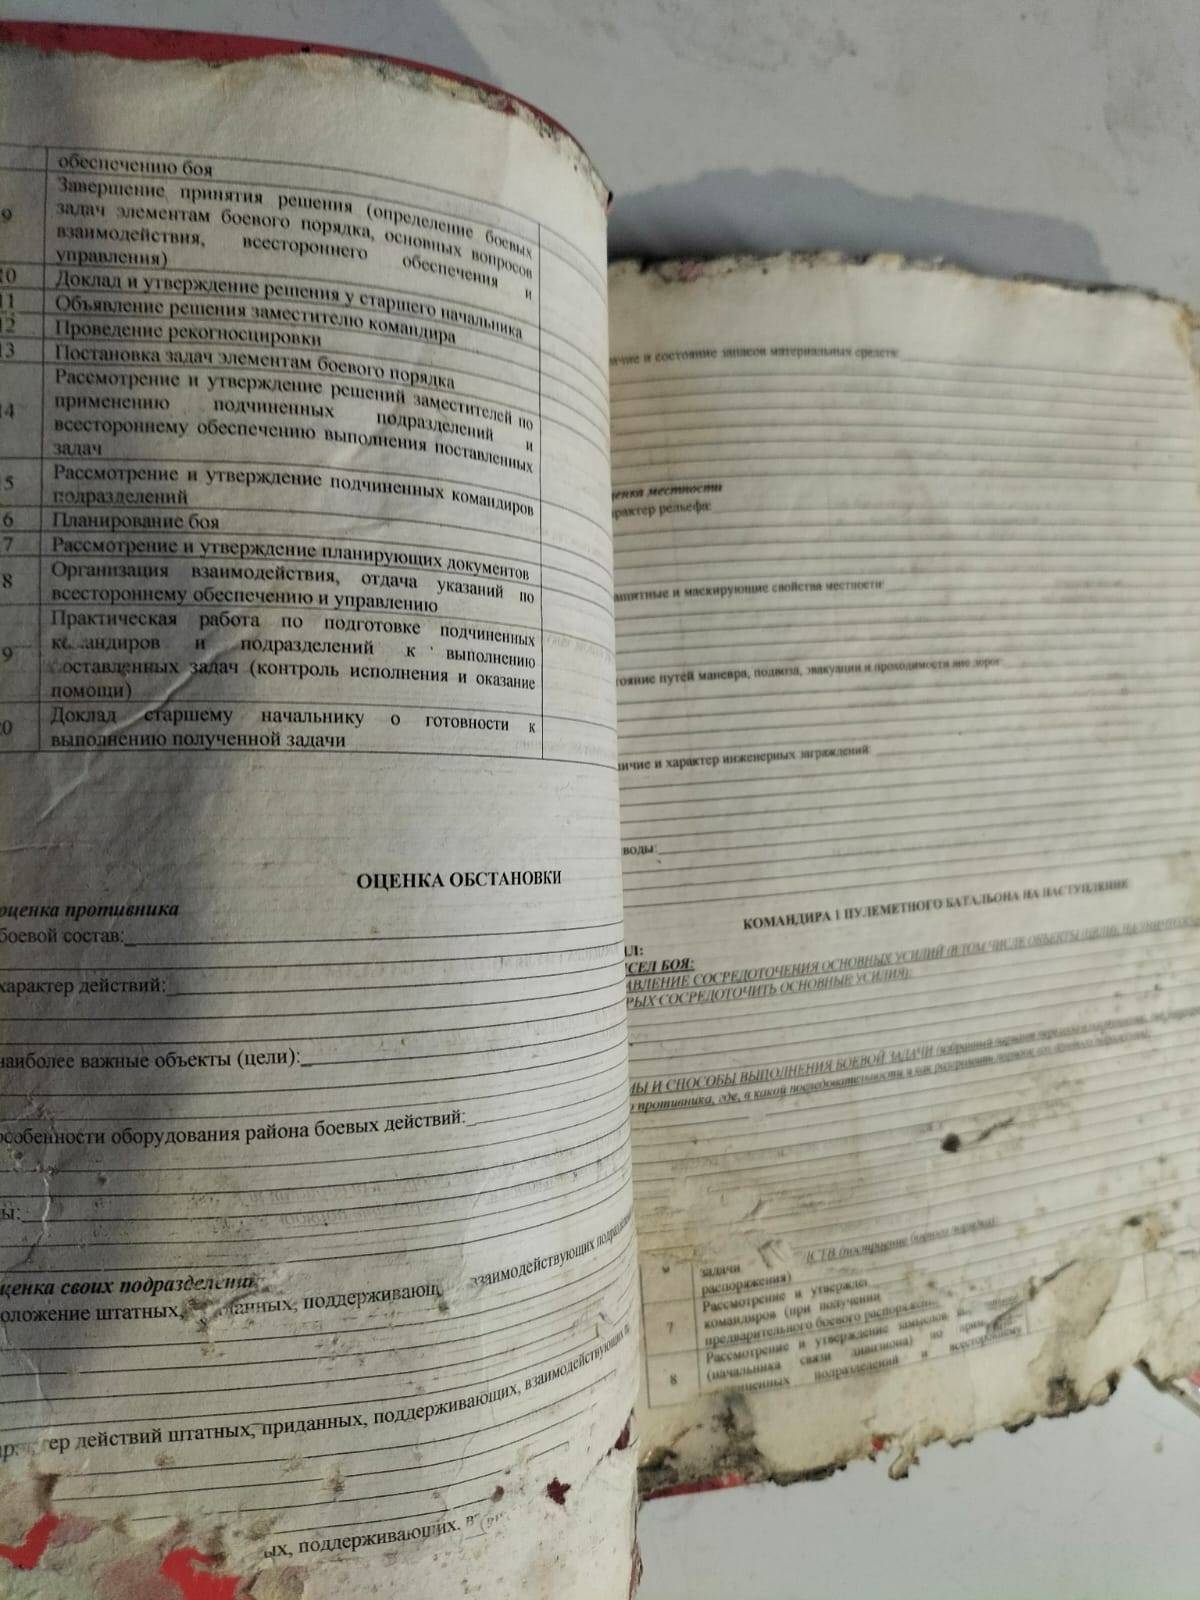 обеспечению боя
9 Завершение принятия решения (определение боевых
задач элементам боевого порядка, основных вопросов
взаимодействия, всестороннего обеспечения и
управления)
10 Доклад и утверждение решения у старшего начальника
11 Объявление решения заместителю командира
12 Проведение рекогносцировки
13 Постановка задач элементам боевого порядка
14 Рассмотрение и утверждение решений заместителей по
применению подчиненных подразделений и
всестороннему обеспечению выполнения поставленных
задач
5 Рассмотрение и утверждение подчиненных командиров
подразделений
6 Планирование боя
7 Рассмотрение и утверждение планирующих документов
8 Организация взаимодействия, отдача указаний по
всестороннему обеспечению и управлению
9 Практическая работа по подготовке подчиненных
командиров и подразделений к выполнению
поставленных задач (контроль исполнения и оказание
помощи)
0 Доклад старшему начальнику о готовности к
выполнению полученной задачи
ОЦЕНКА ОБСТАНОВКИ
оценка противника
боевой состав:
характер действий:
наиболее важные объекты (цели):
особенности оборудования района боевых действий:
ы:
ценка своих подразделени
оложение штатных, данных, поддерживающ взаимодействующих
тер действий штатных, приданных, поддерживающих, взаимодействующих
ых, поддерживающих.
ичие и состояние запасов материальных средств:
енка местности
рактер рельефа:
ащитные и маскирующие свойства местности:
тояние путей маневра, подвоза, эвакуации и проходимости вне дорог:
ичие и характер инженерных заграждений:
воды:
КОМАНДИРА 1 ПУЛЕМЕТНОГО БАТАЛЬОНА НА НАСТУПЛЕНИЕ
АЛ:
СЕЛ БОЯ:
АВЛЕНИЕ СОСРЕДОТОЧЕНИЯ ОСНОВНЫХ УСИЛИЙ (В ТОМ ЧИСЛЕ ОБЪЕКТЫ (ЦЕЛИ),
РЫХ СОСРЕДОТОЧИТЬ ОСНОВНЫЕ УСИЛИЯ):
МЫ И СПОСОБЫ ВЫПОЛНЕНИЯ БОЕВОЙ ЗАДАЧИ
противника, где, в какой последовательности и как
(построение боевого порядка)
задачи
распоряжения)
7 Рассмотрение и утвержде
командиров (при получении
предварительного боевого распоряжен
8 Рассмотрение и утверждение замыслов
(начальника связи дивизиона) по
подразделений и всестороннему